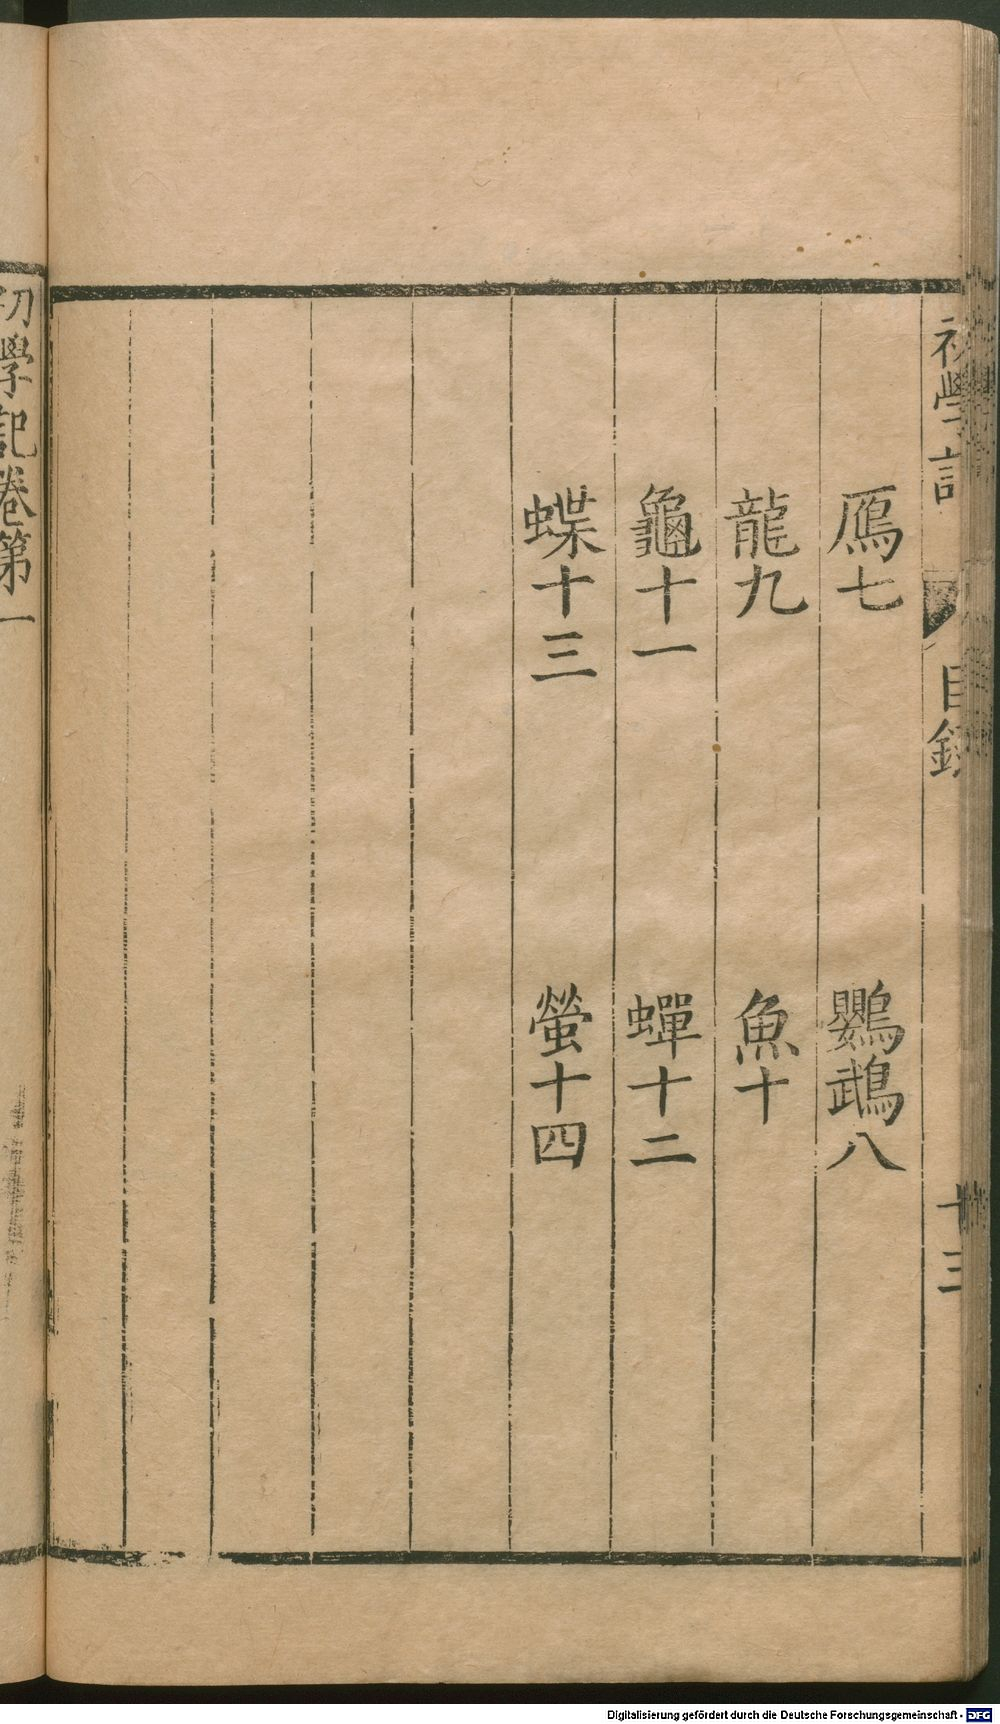 初學記
目錄
十三
鴈七
鸚鵡八
龍九
魚十
龜十一
蟬十二
蝶十三
螢十四
初學記卷第一
Digitalisierung gefördert durch die Deutsche Forschungsgemeinschaft - DFG